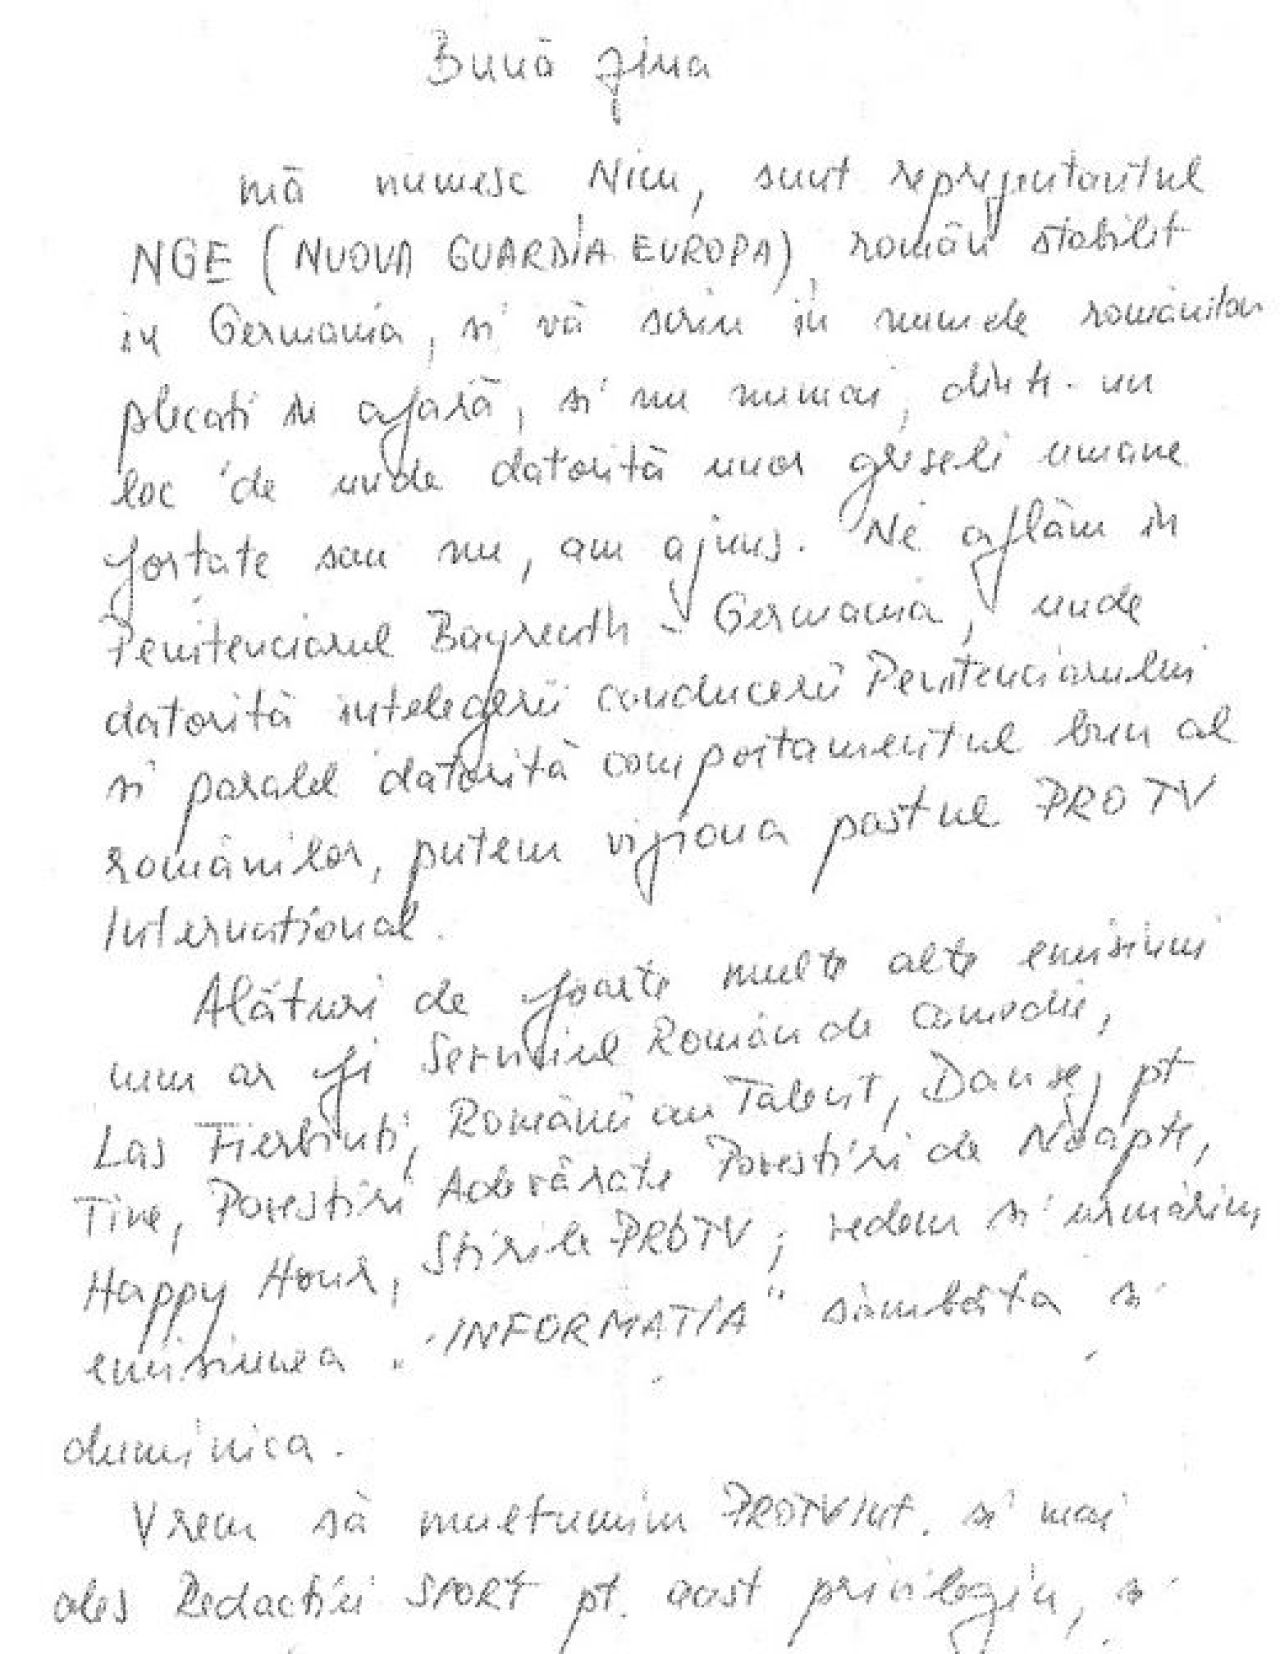 Bună ziua
mă numesc Nicu, sunt reprezentantul
NGE (NUOVA GUARDIA EUROPA), român stabilit
in Germania, si vă scriu in numele românilor
plecati in afară, si nu numai, dintr-un
loc de unde datorită unor greseli umane
fortate sau nu, am ajuns. Ne aflăm in
Penitenciarul Bayreuth - Germania, unde
datorită intelegerii conducerii Penitenciarului
si paralel datorită comportamentul bun al
românilor, putem viziona postul PRO TV
International.
Alături de foarte multe alte emisiuni
cum ar fi Serviciul Român de Comedie,
Las Fierbinti, Românii au Talent, Dansez pt
Tine, Povestiri Adevărate Povestiri de Noapte,
Happy Hour, Stirile PROTV; vedem si urmărim,
emisiunea "INFORMATIA" sâmbăta si
duminica.
Vrem să multumim PROTV Int. si mai
ales Redactiei SPORT pt. acest privilegiu, si